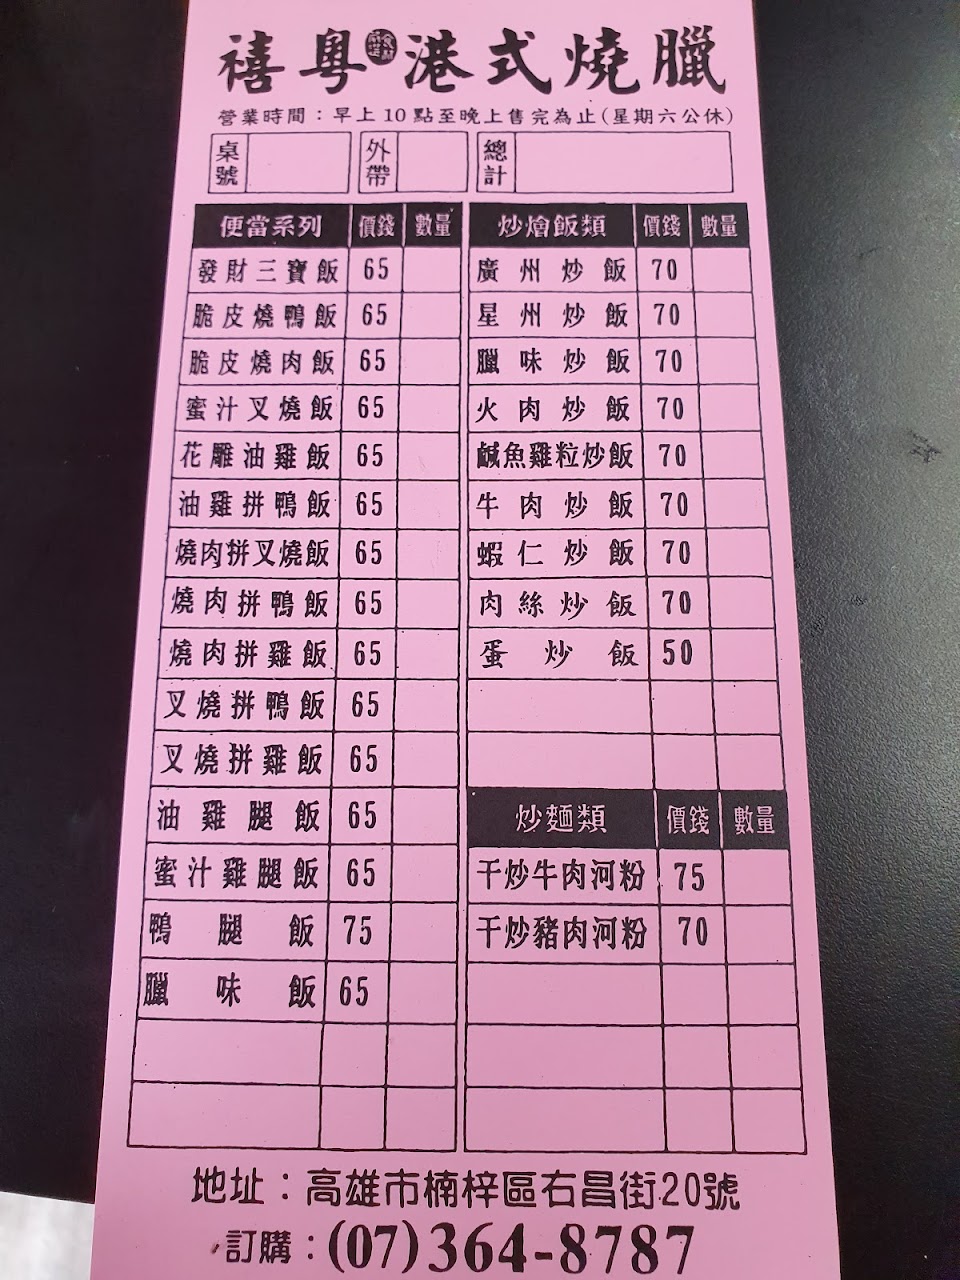 禧粵港式燒臘
營業時間：早上10點至晚上售完為止(星期六公休)
桌號 外帶 總計
便當系列 價錢 數量
發財三寶飯 65
脆皮燒鴨飯 65
脆皮燒肉飯 65
蜜汁叉燒飯 65
花雕油雞飯 65
油雞拼鴨飯 65
燒肉拼叉燒飯 65
燒肉拼鴨飯 65
燒肉拼雞飯 65
叉燒拼鴨飯 65
叉燒拼雞飯 65
油雞腿飯 65
蜜汁雞腿飯 65
鴨腿飯 75
臘味飯 65
炒燴飯類 價錢 數量
廣州炒飯 70
星州炒飯 70
臘味炒飯 70
火肉炒飯 70
鹹魚雞粒炒飯 70
牛肉炒飯 70
蝦仁炒飯 70
肉絲炒飯 70
蛋炒飯 50
炒麵類 價錢 數量
干炒牛肉河粉 75
干炒豬肉河粉 70
地址：高雄市楠梓區右昌街20號
訂購：(07)364-8787